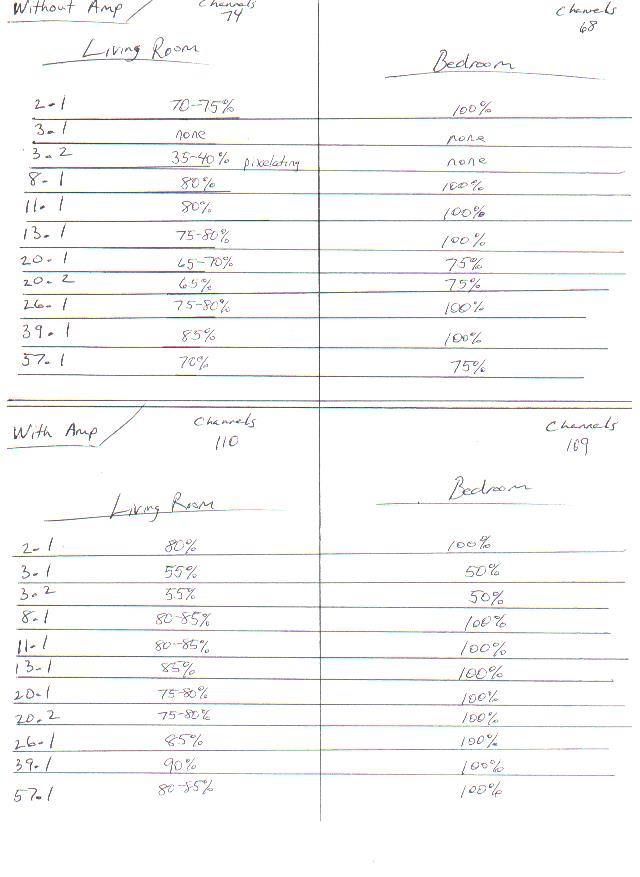 Without Amp / Channels 74 Channels 68
Living Room Bedroom
2-1 70-75% 100%
3-1 none none
3-2 35-40% pixelating none
8-1 80% 100%
11-1 80% 100%
13-1 75-80% 100%
20-1 65-70% 75%
20-2 65% 75%
26-1 75-80% 100%
39-1 85% 100%
57-1 70% 75%
With Amp / Channels 110 Channels 109
Living Room Bedroom
2-1 80% 100%
3-1 55% 50%
3-2 55% 50%
8-1 80-85% 100%
11-1 80-85% 100%
13-1 85% 100%
20-1 75-80% 100%
20-2 75-80% 100%
26-1 85% 100%
39-1 90% 100%
57-1 80-85% 100%